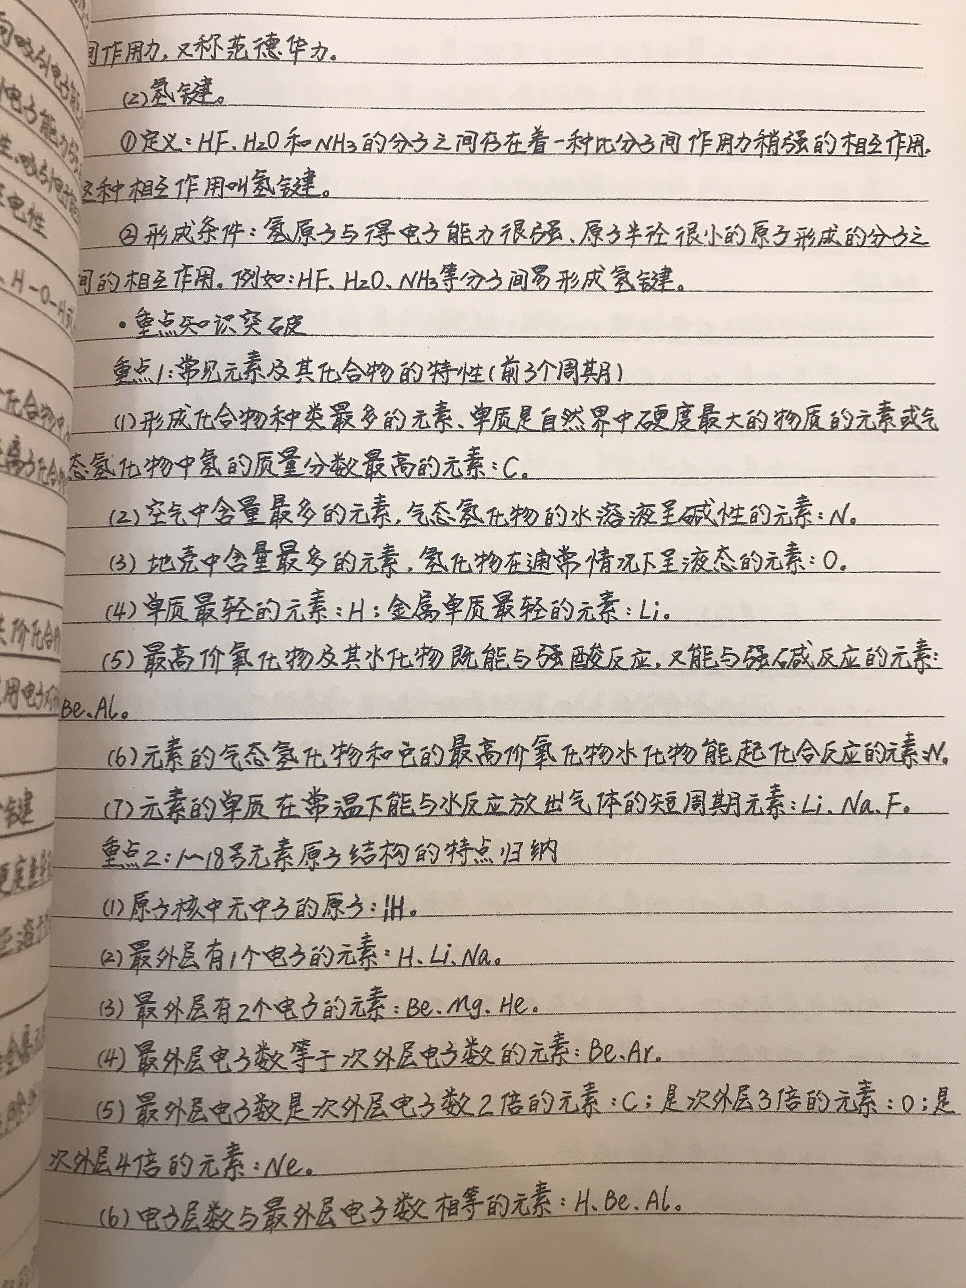 间作用力，又称范德华力。
(2)氢键。
①定义：HF、H₂O和NH₃的分子之间存在着一种比分子间作用力稍强的相互作用，
这种相互作用叫氢键。
②形成条件：氢原子与得电子能力很强、原子半径很小的原子形成的分子之
间的相互作用。例如：HF、H₂O、NH₃等分子间易形成氢键。
·重点知识突破
重点1：常见元素及其化合物的特性(前3个周期)
(1)形成化合物种类最多的元素、单质是自然界中硬度最大的物质的元素或气
态氢化物中氢的质量分数最高的元素：C。
(2)空气中含量最多的元素，气态氢化物的水溶液呈碱性的元素：N。
(3)地壳中含量最多的元素，氢化物在通常情况下呈液态的元素：O。
(4)单质最轻的元素：H；金属单质最轻的元素：Li。
(5)最高价氧化物及其水化物既能与强酸反应，又能与强碱反应的元素：
Be、Al。
(6)元素的气态氢化物和它的最高价氧化物水化物能起化合反应的元素：N。
(7)元素的单质在常温下能与水反应放出气体的短周期元素：Li、Na、F。
重点2：1～18号元素原子结构的特点归纳
(1)原子核中无中子的原子：¹₁H。
(2)最外层有1个电子的元素：H、Li、Na。
(3)最外层有2个电子的元素：Be、Mg、He。
(4)最外层电子数等于次外层电子数的元素：Be、Ar。
(5)最外层电子数是次外层电子数2倍的元素：C；是次外层3倍的元素：O；是
次外层4倍的元素：Ne。
(6)电子层数与最外层电子数相等的元素：H、Be、Al。